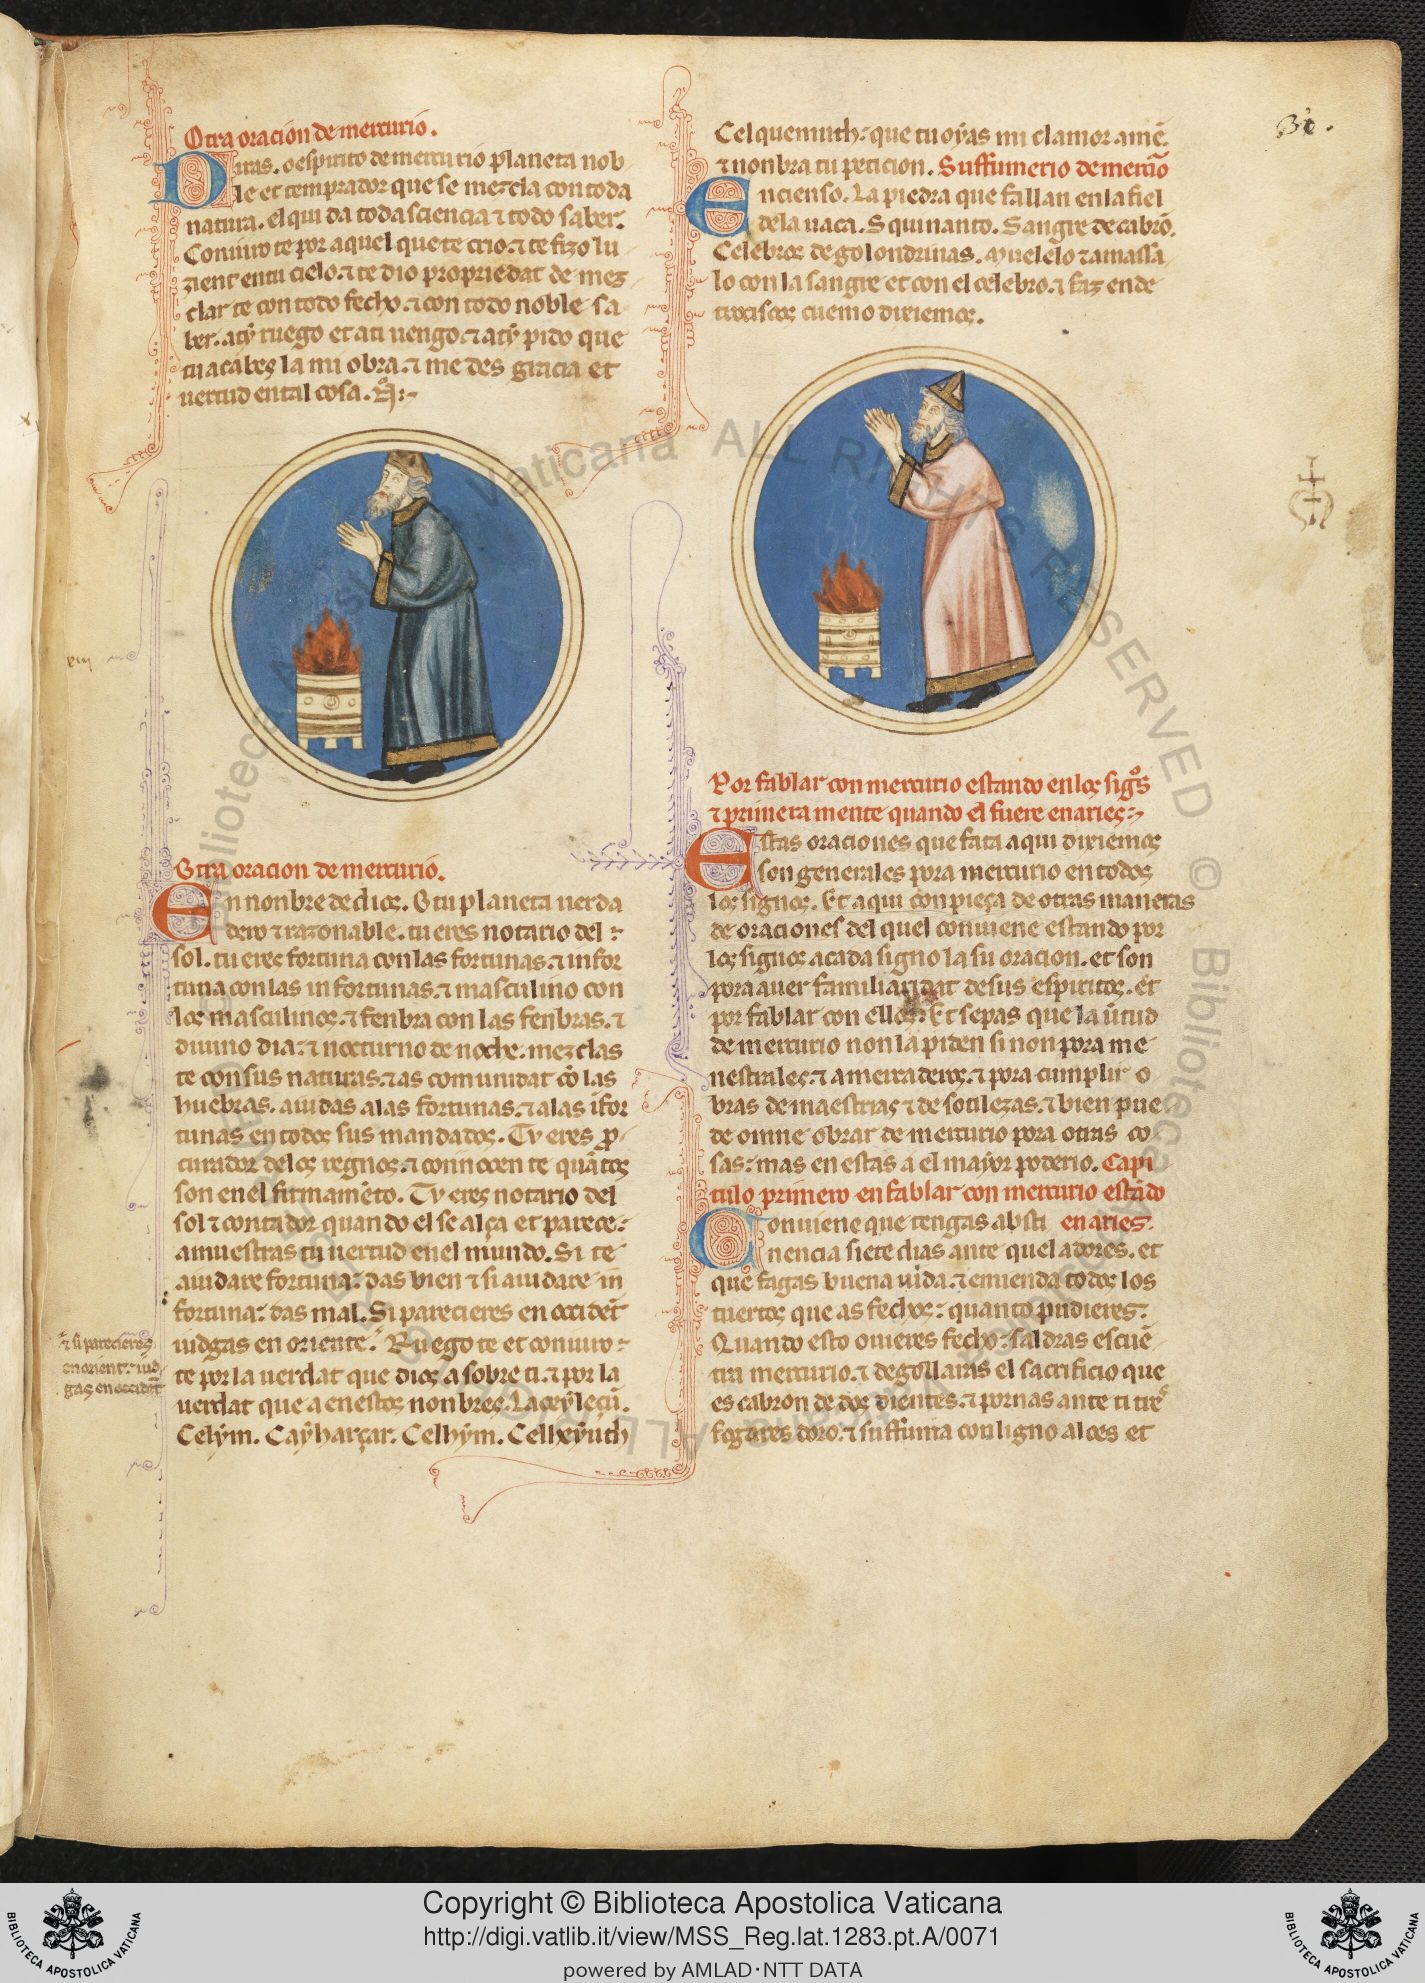 Otra oracion de mercurio.
Diras. o espirito de mercurio planeta nob
le et temprador que se mezcla con toda
natura. el qui da toda sciencia ⁊ todo saber.
Coniuro te por aquel que te crio. ⁊ te fizo lu
zient en tu cielo. ⁊ te dio propriedat de mez
clar te con todo fecho. ⁊ con todo noble sa
ber. a ty ruego et a ti uengo. ⁊ a ty pido que
tu acabes la mi obra. ⁊ me des gracia et
uertud en tal cosa.
Otra oracion de mercurio.
En nonbre de dios. O tu planeta uerda
dero ⁊ razonable. tu eres notario del
sol. tu eres fortuna con las fortunas. ⁊ infor
tuna con las infortunas. ⁊ masculino con
los masculinos. ⁊ fenbra con las fenbras. ⁊
diurno dia. ⁊ nocturno de noche. mezclas
te con sus naturas. ⁊ as comunidat cō las
huebras. aiudas a las fortunas. ⁊ a las īfor
tunas en todos sus mandados. Tu eres ꝓ
curador delos regnos. ⁊ connocen te quātos
son en el firmamēto. Tu eres notario del
sol ⁊ contador quando el se alça et parece.
amuestras tu uertud en el mundo. Si te
aiudare fortuna: das bien ⁊ si aiudare in
fortuna: das mal. Si parecieres en occidēt
iudgas en oriente. Ruego te et coniuro
te por la uerdat que dios a sobre ti. ⁊ por la
uerdat que a en estos nonbres. Laceyleçū.
Celym. Cayharçar. Celhym. Celheyuth
⁊ si parecieres
en orient: iud
gas en occidēt
xiii
31.
Celquemuth: que tu oyas mi clamor. amē.
⁊ nonbra tu peticion. Suffumerio de mercūo
Encienso. La piedra que fallan en la fiel
dela uaca. Squinanto. Sangre de cabrō.
Celebros de golondrinas. Muelelo ⁊ amassa
lo con la sangre et con el celebro. ⁊ faz ende
trociscos cuemo dixiemos.
Por fablar con mercurio estando en los sigos
⁊ primera mente quando el fuere en aries
Estas oraciones que fata aqui dixiemos
son generales pora mercurio en todos
los signos. Et aqui conpieça de otras maneras
de oraciones del quel conuiene estando por
los signos a cada signo la su oracion. et son
pora auer familiaridat de sus espiritos. et
por fablar con ellos. Et sepas que la ūtud
de mercurio non la piden si non pora me
nestrales. ⁊ a mercaderos. ⁊ pora cumplir o
bras de maestrias ⁊ de sotilezas. ⁊ bien pue
de omne obrar de mercurio pora otras co
sas: mas en estas a el mayor poderio. Capi
tulo primero en fablar con mercurio estādo
en aries.
Conuiene que tengas absti
nencia siete dias ante quel adores. et
que fagas buena uida. ⁊ emienda todos los
tuertos que as fechos: quanto pudieres:
Quando esto ouieres fecho: saldras escuē
tra mercurio. ⁊ degollaras el sacrificio que
es cabron de dos dientes. ⁊ pornas ante ti tres
fogares doro. ⁊ suffuma con ligno aloes et
Copyright © Biblioteca Apostolica Vaticana
http://digi.vatlib.it/view/MSS_Reg.lat.1283.pt.A/0071
powered by AMLAD·NTT DATA
BIBLIOTECA APOSTOLICA VATICANA
BIBLIOTECA APOSTOLICA VATICANA